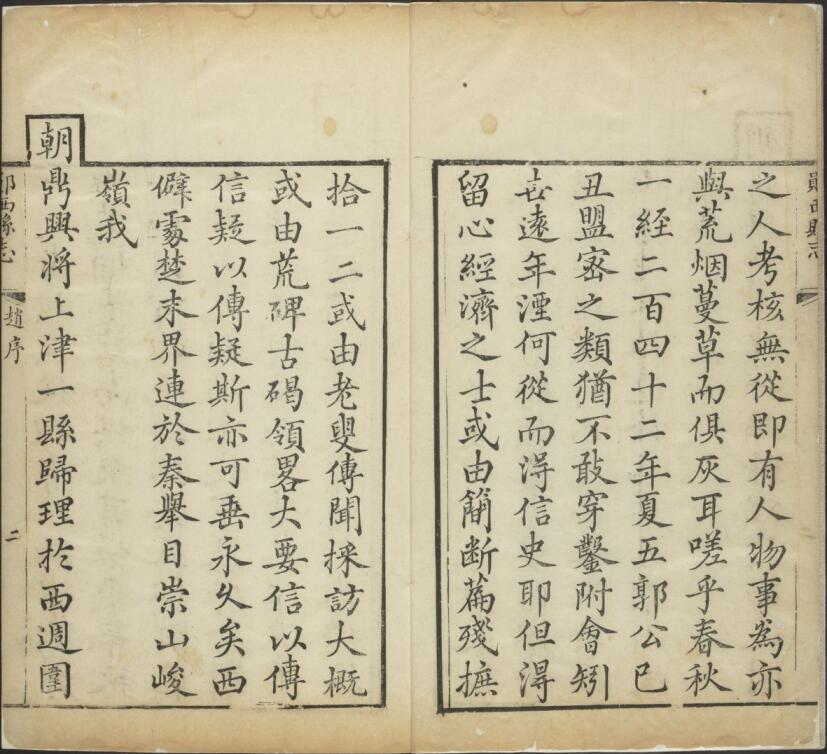 鄖西縣志
之人考核無從即有人物事為亦
與荒烟蔓草而俱灰耳嗟乎春秋
一經二百四十二年夏五郭公己
丑盟宻之類猶不敢穿鑿附會矧
世遠年湮何從而淂信史耶但淂
留心經濟之士或由簡断篇殘摭
拾一二或由老叟傳聞採訪大概
或由荒碑古碣領畧大要信以傳
信疑以傳疑斯亦可垂永久矣西
僻處楚末界連於秦舉目崇山峻
嶺我
朝鼎興将上津一縣歸理於西週圍
鄖西縣志 趙序 二